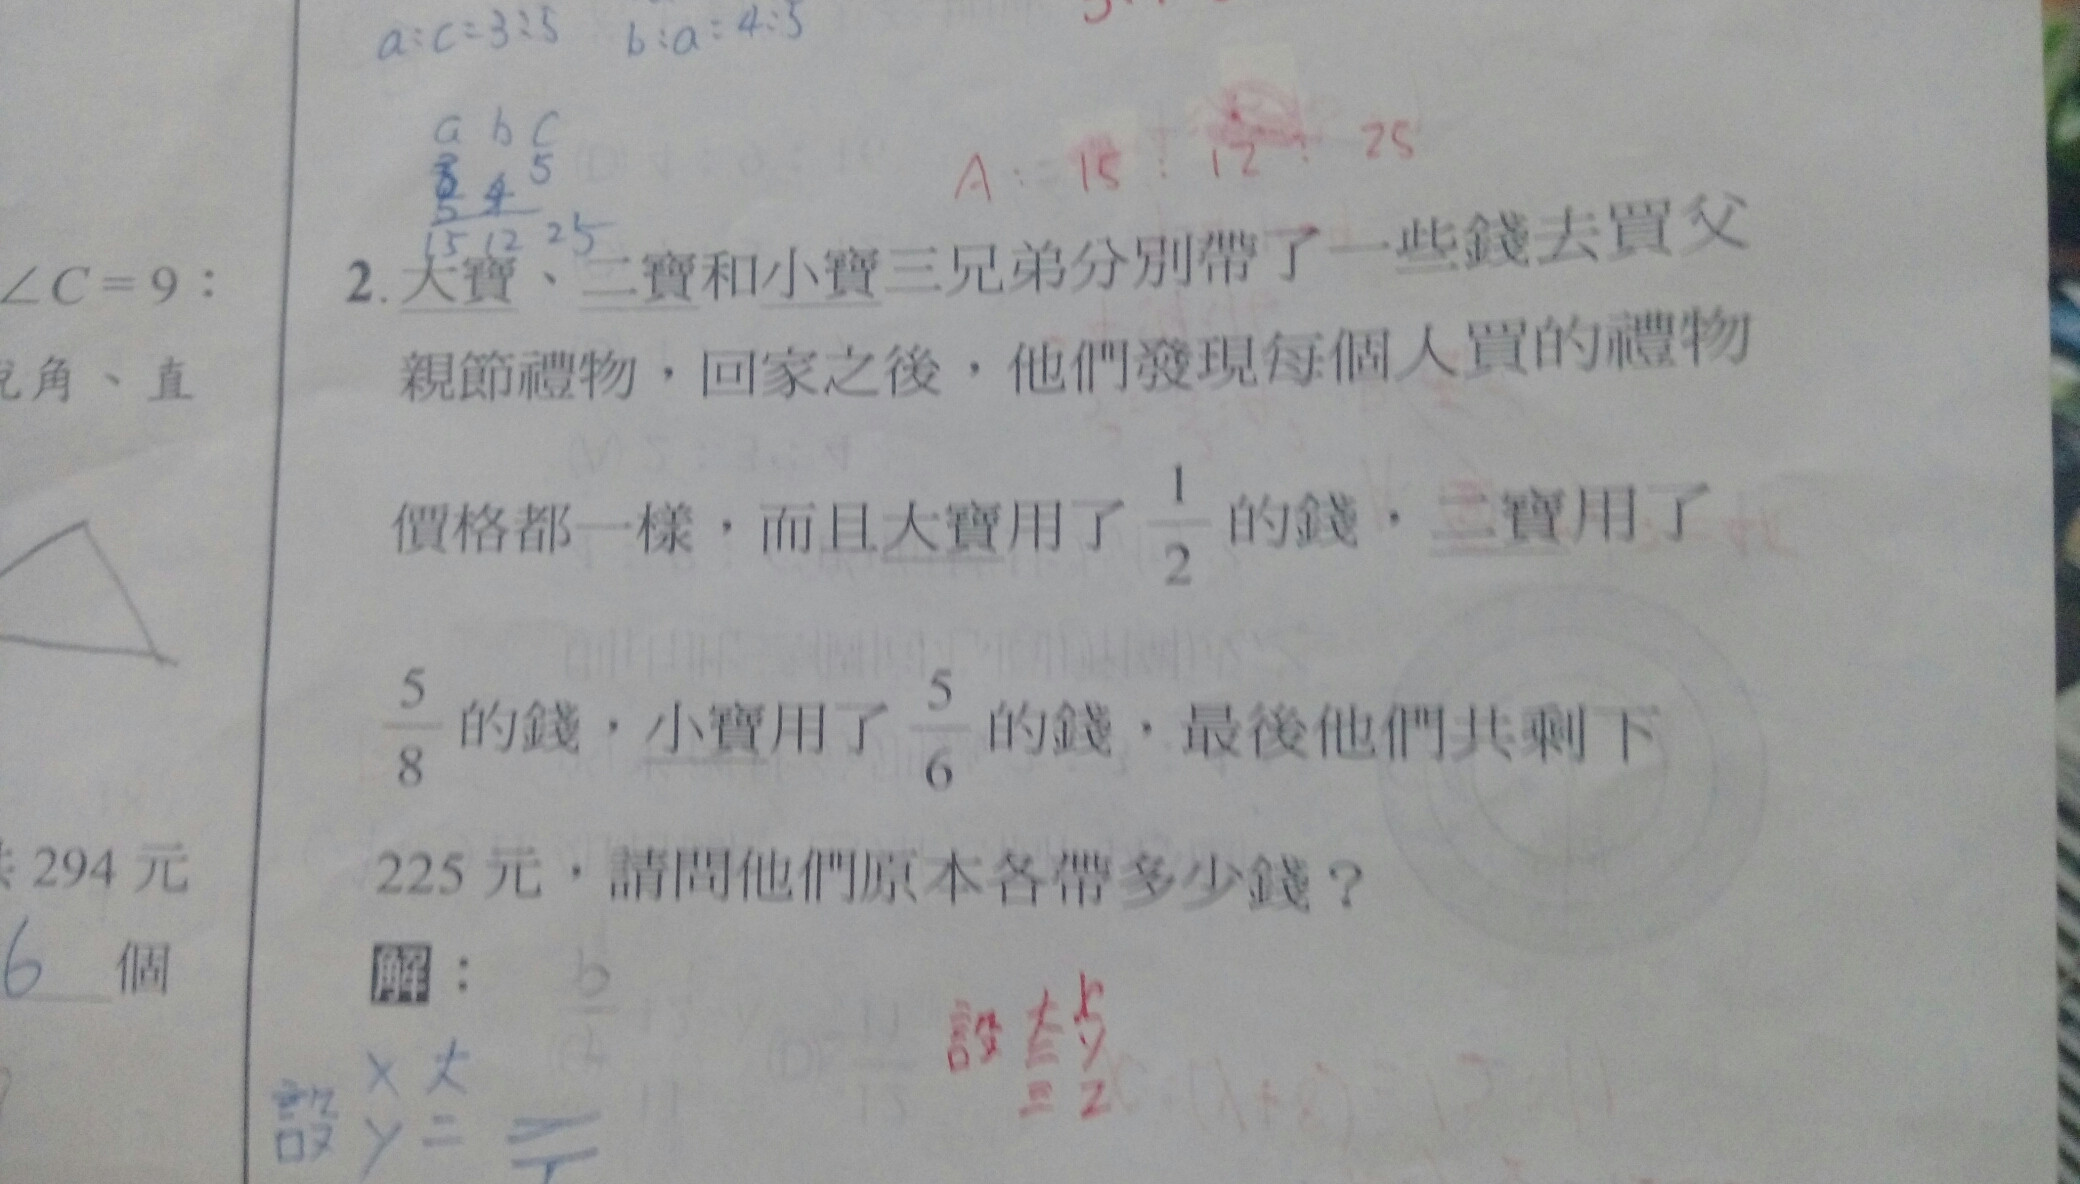 a:c=3:5 b:a=4:5
a b c
5
4
15 12 25
A:=15:12:25
∠C=9:
角、直
2.大寶、二寶和小寶三兄弟分別帶了一些錢去買父
親節禮物，回家之後，他們發現每個人買的禮物
價格都一樣，而且大寶用了 1/2 的錢，二寶用了
5/8 的錢，小寶用了 5/6 的錢，最後他們共剩下
225 元，請問他們原本各帶多少錢？
294 元
6 個
解：
設 大 x
二 y
三 z
設 x 大
y 二